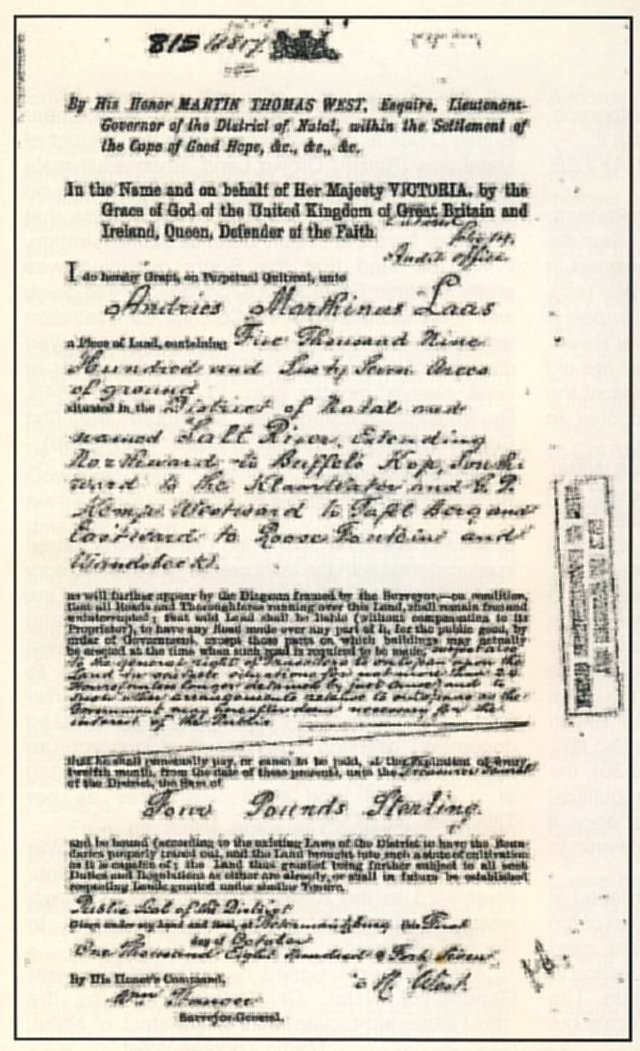 815
By His Honor MARTIN THOMAS WEST, Esquire, Lieutenant-
Governor of the District of Natal, within the Settlement of
the Cape of Good Hope, &c., &c., &c.
In the Name and on behalf of Her Majesty VICTORIA, by the
Grace of God of the United Kingdom of Great Britain and
Ireland, Queen, Defender of the Faith
Audit Office
I do hereby Grant, on Perpetual Quitrent, unto
Andries Marthinus Laas
a Piece of Land, containing Five Thousand Nine
Hundred and Sixty Seven Acres
of ground
situated in the District of Natal and
named Salt River, Extending
Northward to Buffels Kop, South
ward to the Klaarwater and
Kemp, Westward to Tafel Berg and
Eastward to Roose Fontein and
as will further appear by the Diagram framed by the Surveyor,—on condition,
that all Roads and Thoroughfares running over this Land, shall remain free and
uninterrupted; that said Land shall be liable (without compensation to its
Proprietor), to have any Road made over any part of it, for the public good, by
order of Government, except those parts on which buildings may actually
be erected at the time when such road is required to be made; subject also
to the general right of Travellers to outspan upon the
Land
Hours, unless longer detained by and to
such other arrangements relative to outspans as the
Government may hereafter deem necessary for the
interest of the Public
that he shall punctually pay, or cause to be paid, at the Expiration of every
twelfth month, from the date of these presents, unto the Treasurer
of the District, the Sum of
Four Pounds Sterling.
and be bound (according to the existing Laws of the District) to have the Boun-
daries properly traced out, and the Land brought into such a state of cultivation
as it is capable of; the Land thus granted being further subject to all such
Duties and Regulations as either are already, or shall in future be established
respecting Lands granted under similar Tenure.
Public Seal of the District
Given under my Hand and Seal, at Pietermaritzburg this First
day of October
One Thousand Eight Hundred & Forty Seven
By His Honor's Command,
M. West
Surveyor-General.